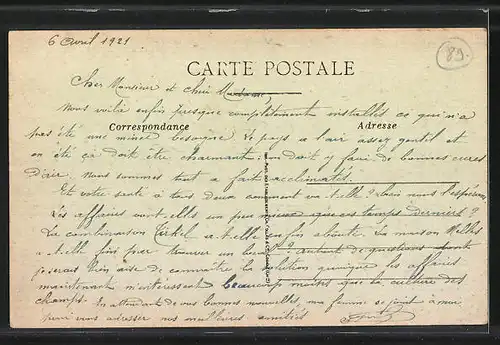 6 Avril 1921
89
CARTE POSTALE
Cher Monsieur et chère Madame,
Nous voilà enfin presque complètement installés ce qui n'a
pas été une mince besogne. Le pays a l'air assez gentil et
Correspondance Adresse
en été ça doit être charmant: on doit y faire de bonnes cures
d'air. Nous sommes tout a fait acclimatés.
Et votre santé à tous deux comment va-t-elle? bien nous l'espérons
Les affaires vont elles un peu mieux que ces temps derniers?
La combinaison a-t-elle enfin aboutie. La maison
a-t-elle fini par trouver un local? autant de questions dont
je serais bien aise de connaître la solution quoique les affaires
maintenant m'intéressent beaucoup moins que la culture des
champs. En attendant de vos bonnes nouvelles, ma femme se joint à moi
pour vous adresser nos meilleures amitiés